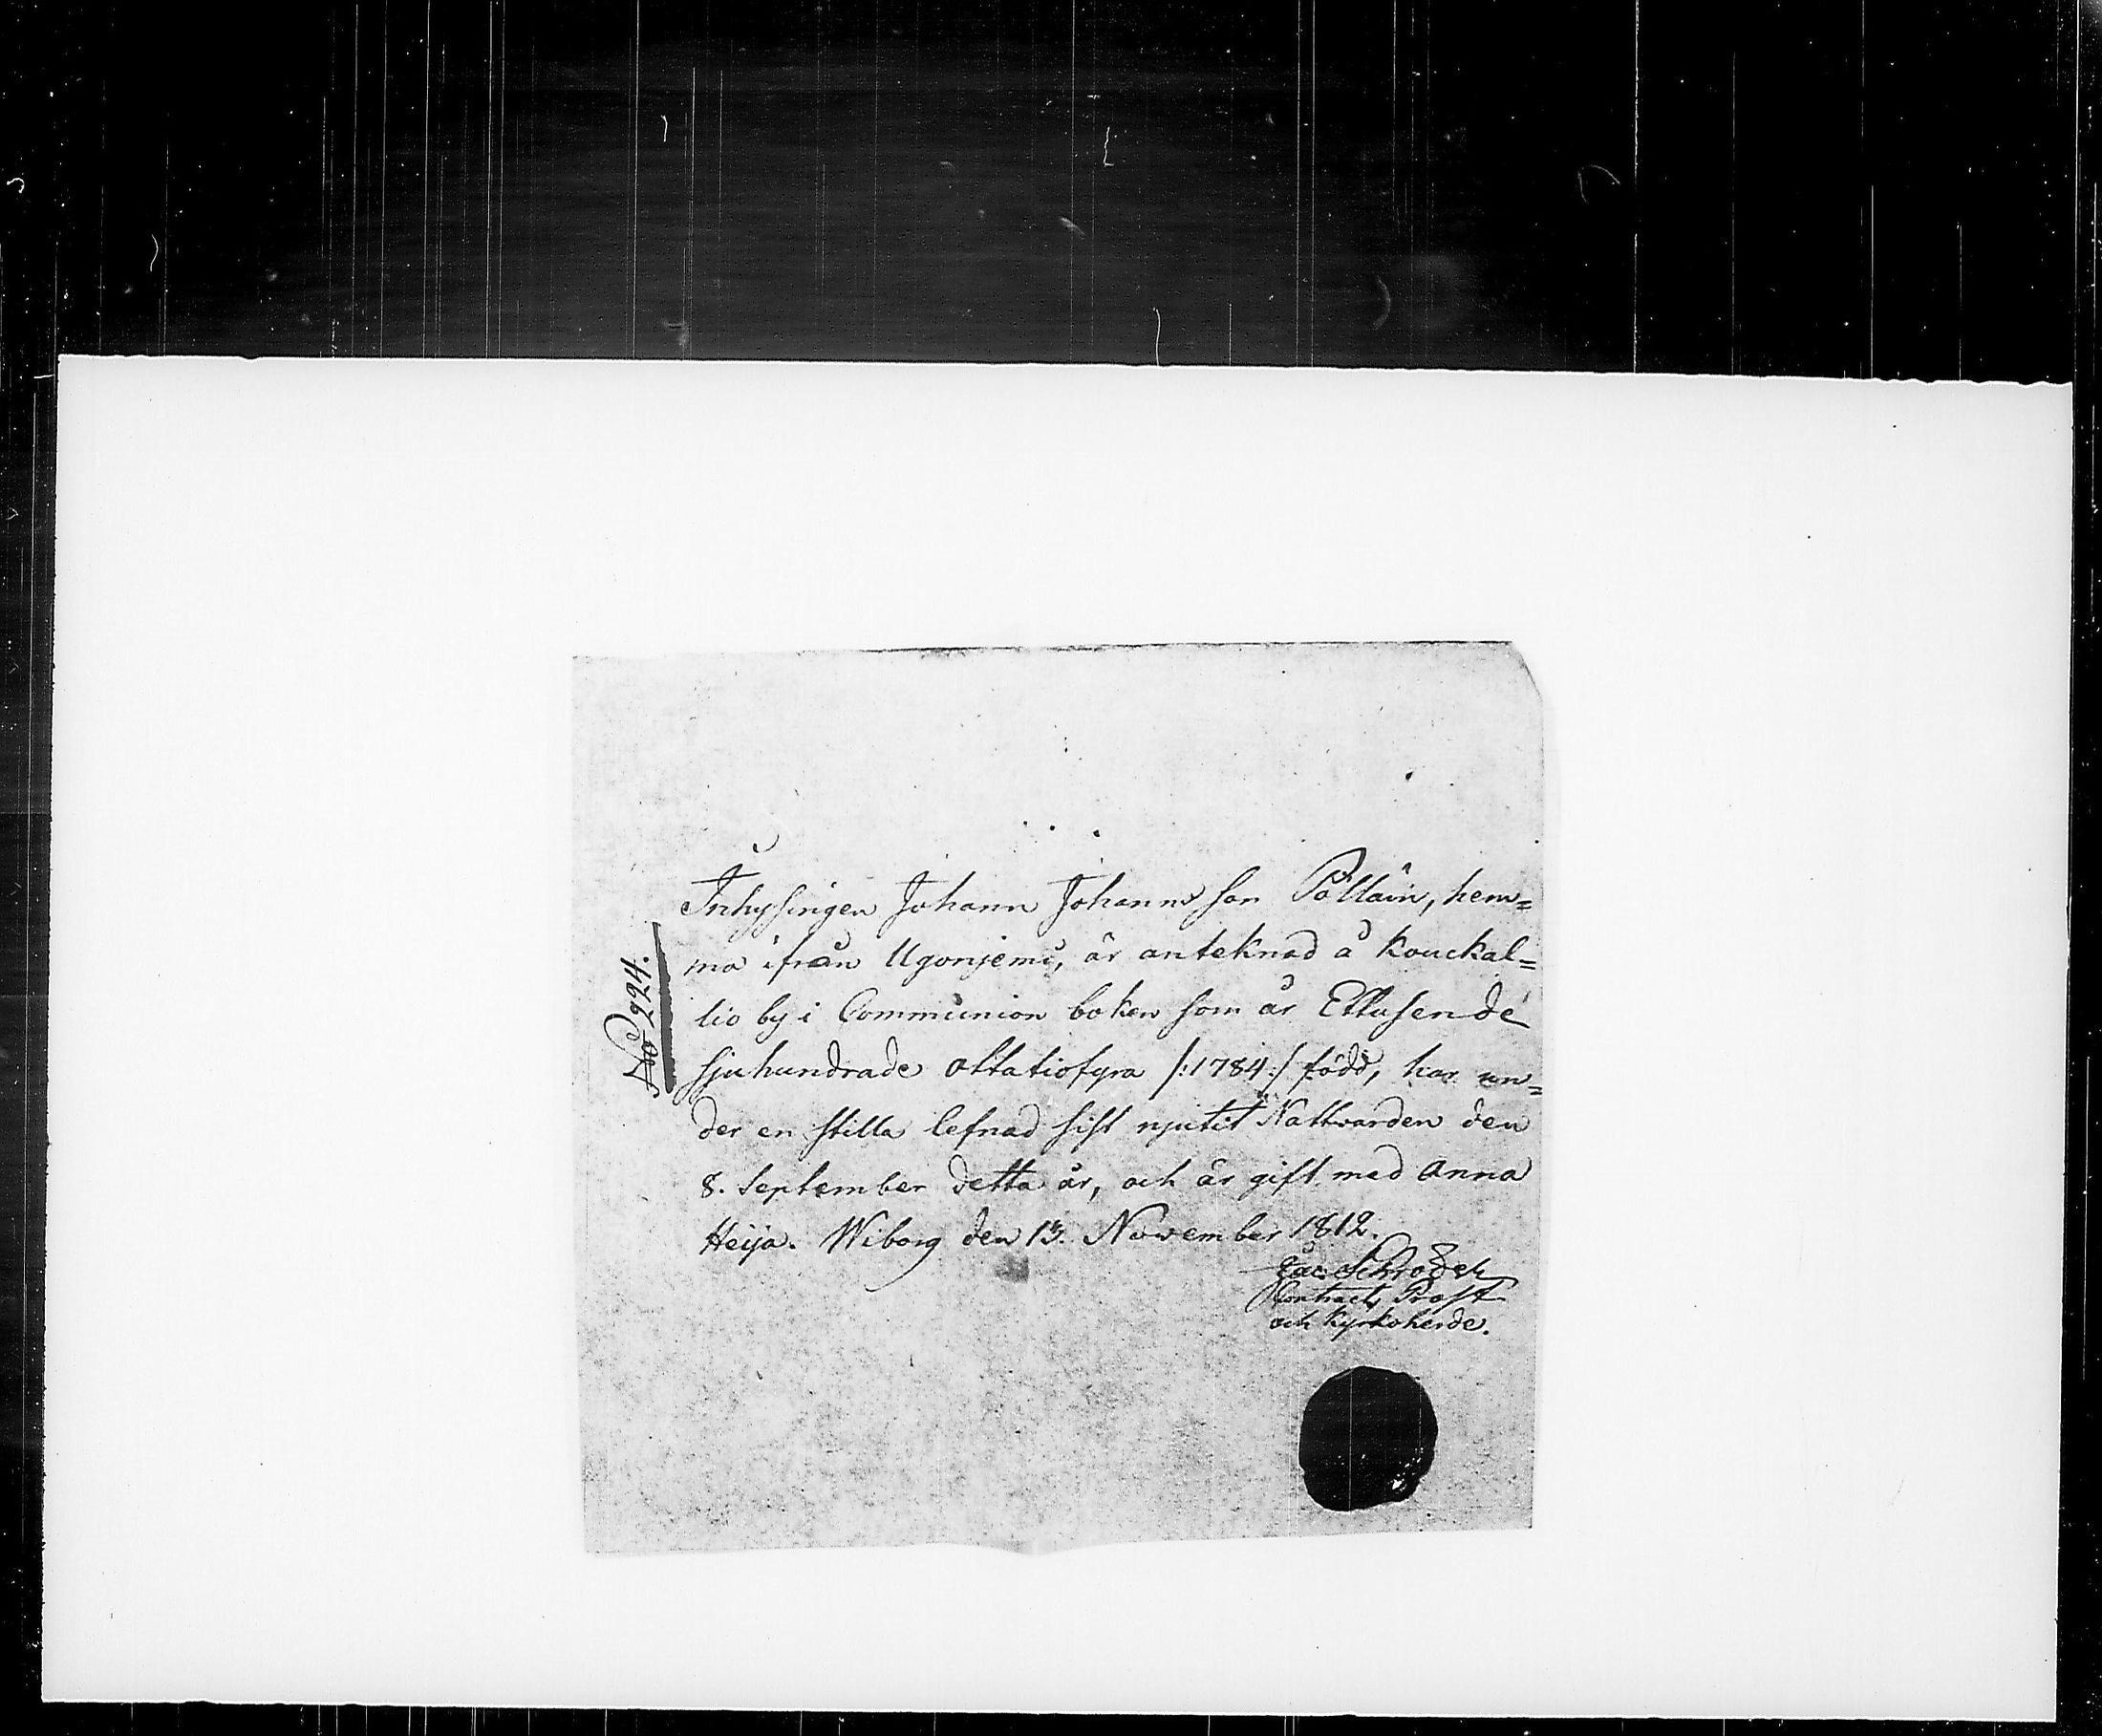 No 924.
Inhysingen Johann Johannsson Pölläin, hem=
ma ifrån Ugonjemi, är anteknad å Kouckal=
lio by i Communion boken som år Ettusende
sjuhundrade ottatiofyra /:1784:/ född, har un=
der en stilla lefnad sist njutit Nattvarden den
8. September detta år, och är gift med Anna
Heija. Wiborg den 13. November 1812.
Jac. Schröder
Contracts Prost
och Kyrkoherde.